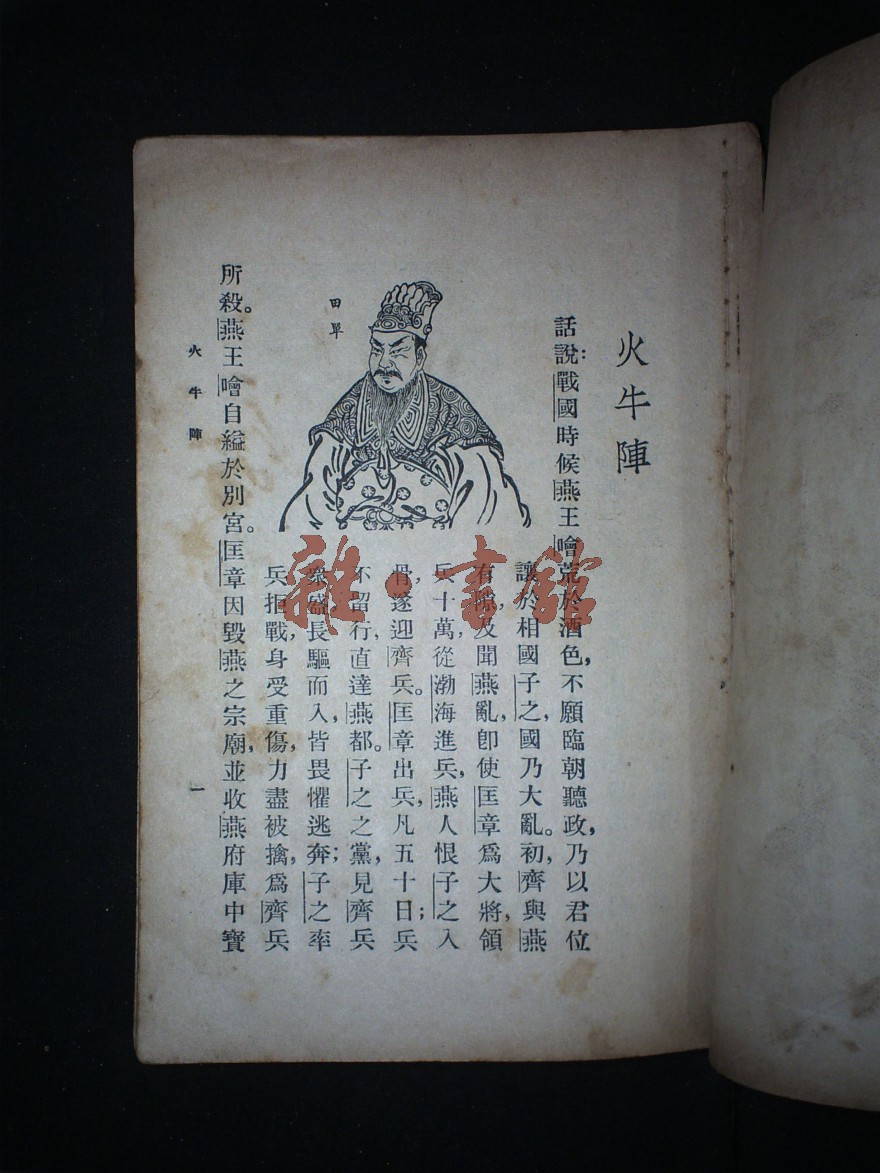 火牛陣
話說：戰國時候燕王噲荒於酒色，不願臨朝聽政，乃以君位
讓於相國子之，國乃大亂。初，齊與燕
有隙，及聞燕亂，卽使匡章爲大將，領
兵十萬，從渤海進兵，燕人恨子之入
骨，遂迎齊兵。匡章出兵，凡五十日；兵
不留行，直達燕都。子之之黨，見齊兵
衆盛，長驅而入，皆畏懼逃奔；子之率
兵拒戰，身受重傷，力盡被擒，爲齊兵
所殺。燕王噲自縊於別宮。匡章因毀燕之宗廟，並收燕府庫中寶
田單
火牛陣
一
雜·書館